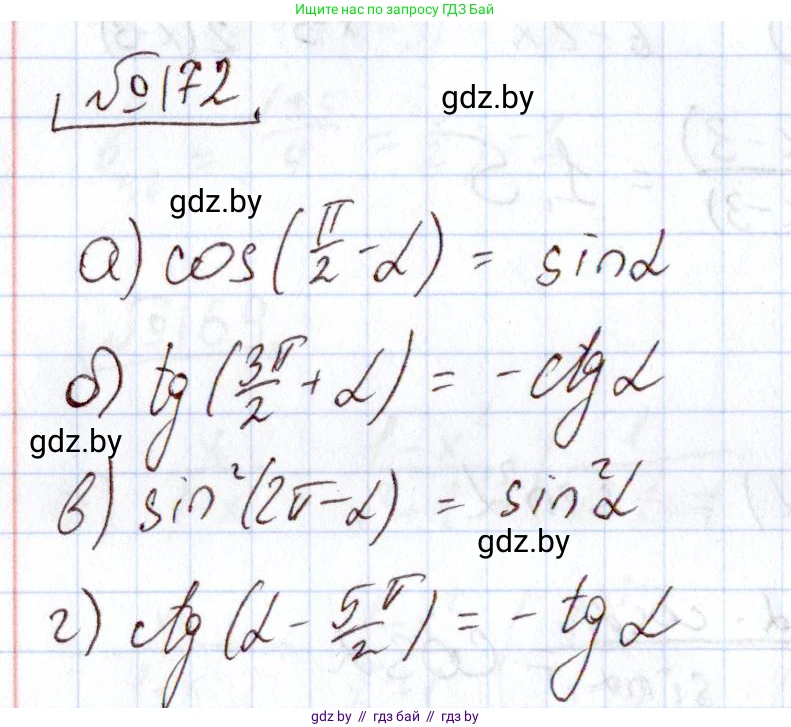 Ищите нас по запросу ГДЗ Бай
№172
gdz.by
gdz.by
а) cos(π/2 - α) = sinα
б) tg(3π/2 + α) = -ctgα
gdz.by
в) sin²(2π-α) = sin²α
gdz.by
г) ctg(α - 5π/2) = -tgα
gdz.by // гдз бай // gdz.by